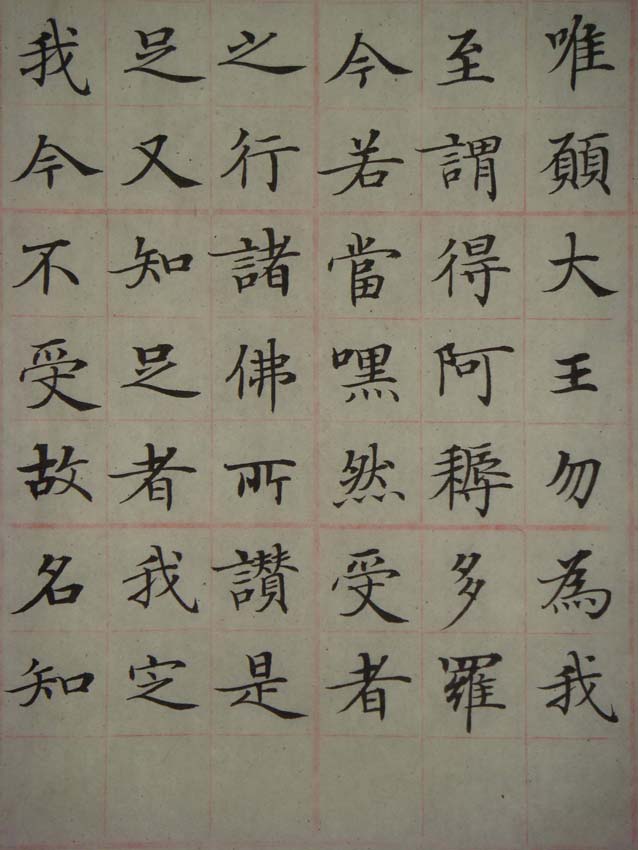 唯願大王勿為我
至謂得阿耨多羅
今若當嘿然受者
之行諸佛所讃是
足又知足者我定
我今不受故名知